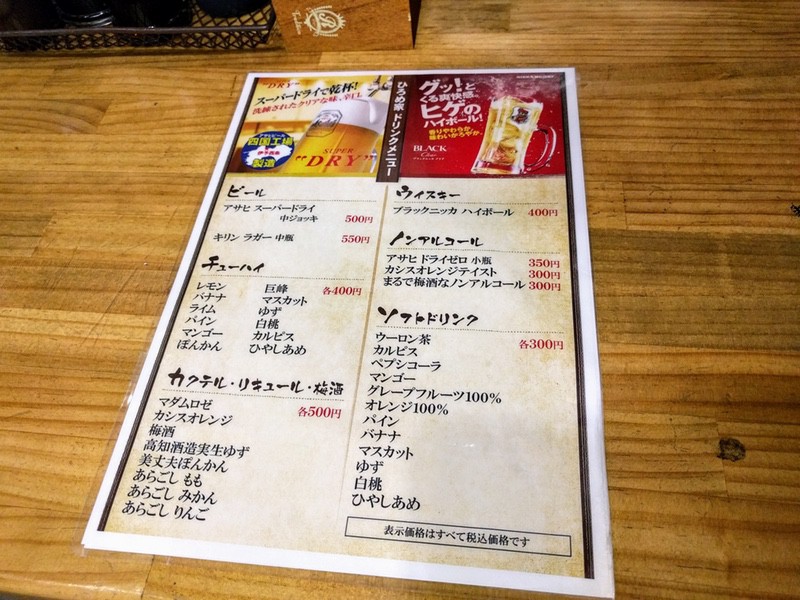 "DRY"
スーパードライで乾杯!
洗練されたクリアな味、辛口。
アサヒビール
四国工場
製造
SUPER
"DRY"
ひろめ家 ドリンクメニュー
グッ!と
くる爽快感。
ヒゲの
ハイボール!
香りやわらか。
味わいかろやか。
BLACK
Clear
ビール
アサヒ スーパードライ
中ジョッキ 500円
キリン ラガー 中瓶 550円
チューハイ
レモン 巨峰 各400円
バナナ マスカット
ライム ゆず
パイン 白桃
マンゴー カルピス
ぽんかん ひやしあめ
カクテル・リキュール・梅酒
マダムロゼ 各500円
カシスオレンジ
梅酒
高知酒造実生ゆず
美丈夫ぽんかん
あらごし もも
あらごし みかん
あらごし りんご
ウィスキー
ブラックニッカ ハイボール 400円
ノンアルコール
アサヒ ドライゼロ 小瓶 350円
カシスオレンジテイスト 300円
まるで梅酒なノンアルコール 300円
ソフトドリンク
ウーロン茶 各300円
カルピス
ペプシコーラ
マンゴー
グレープフルーツ100%
オレンジ100%
パイン
バナナ
マスカット
ゆず
白桃
ひやしあめ
表示価格はすべて税込価格です